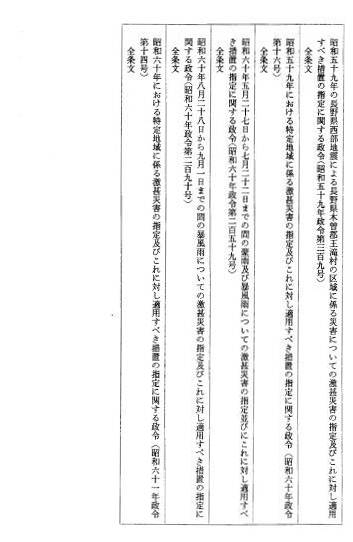 昭和五十九年の長野県西部地震による長野県木曽郡王滝村の区域に係る災害についての激甚災害の指定及びこれに対し適用
すべき措置の指定に関する政令(昭和五十九年政令第三百九号)
全条文
昭和五十九年における特定地域に係る激甚災害の指定及びこれに対し適用すべき措置の指定に関する政令(昭和六十年政令
第十六号)
全条文
昭和六十年五月二十七日から七月二十二日までの間の豪雨及び暴風雨についての激甚災害の指定並びにこれに対し適用すべ
き措置の指定に関する政令(昭和六十年政令第二百五十九号)
全条文
昭和六十年八月二十八日から九月一日までの間の暴風雨についての激甚災害の指定及びこれに対し適用すべき措置の指定に
関する政令(昭和六十年政令第二百九十号)
全条文
昭和六十年における特定地域に係る激甚災害の指定及びこれに対し適用すべき措置の指定に関する政令(昭和六十一年政令
第十四号)
全条文